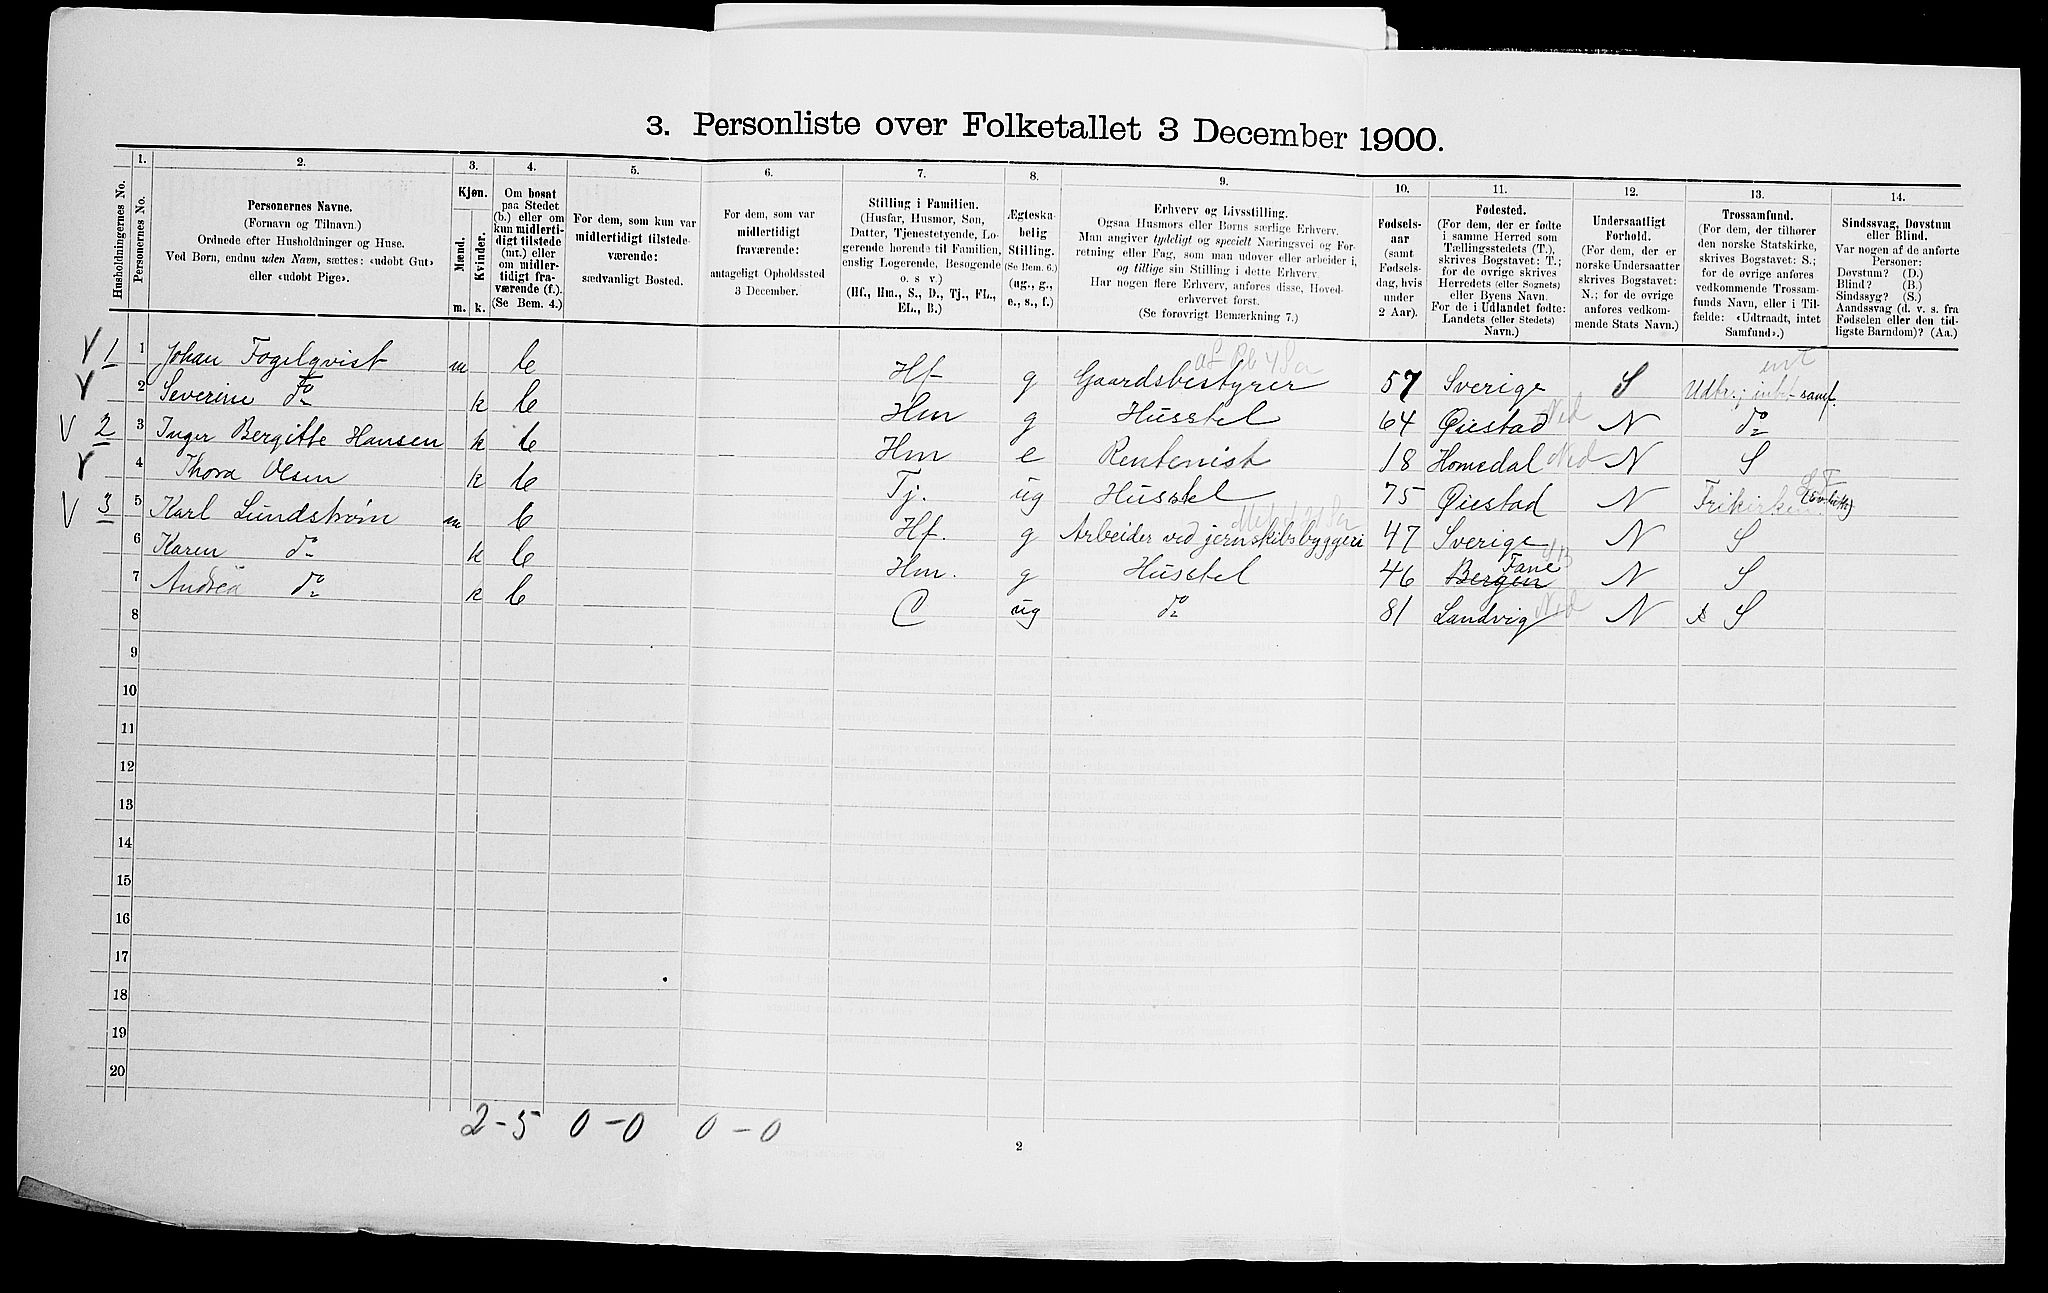 3. Personliste over Folketallet 3 December 1900.
1. 2. 3. 4. 5. 6. 7. 8. 9. 10. 11. 12. 13. 14.
Husholdningernes No.
Personernes No.
Personernes Navne.
(Fornavn og Tilnavn.)
Ordnede efter Husholdninger og Huse.
Ved Børn, endnu uden Navn, sættes: «udøbt Gut»
eller «udøbt Pige».
Kjøn.
Mænd.
Kvinder.
m. k.
Om bosat
paa Stedet
(b.) eller om
kun midlerti-
digt tilstede
(mt.) eller
om midler-
tidigt fra-
værende (f.).
(Se Bem. 4.)
For dem, som kun var
midlertidigt tilstede-
værende:
sædvanligt Bosted.
For dem, som var
midlertidigt
fraværende:
antageligt Opholdssted
3 December.
Stilling i Familien.
(Husfar, Husmor, Søn,
Datter, Tjenestetyende, Lo-
gerende hørende til Familien,
enslig Logerende, Besøgende
o. s. v.)
(Hf., Hm., S., D., Tj., FL.,
EL., B.)
Ægteska-
belig
Stilling.
(Se Bem. 6.)
(ug., g.,
e., s., f.)
Erhverv og Livsstilling.
Ogsaa Husmors eller Børns særlige Erhverv.
Man angiver tydeligt og specielt Næringsvei og For-
retning eller Fag, som man udøver eller arbeider i,
og tillige sin Stilling i dette Erhverv.
Har nogen flere Erhverv, anføres disse, Hoved-
erhvervet først.
(Se forøvrigt Bemærkning 7.)
Fødsels-
aar
(samt
Fødsels-
dag, hvis
under
2 Aar).
Fødested.
(For dem, der er fødte
i samme Herred som
Tællingsstedets (T.),
skrives Bogstavet: T.;
for de øvrige skrives
Herredets (eller Sognets)
eller Byens Navn.
For de i Udlandet fødte:
Landets (eller Stedets)
Navn.)
Undersaatligt
Forhold.
(For dem, der er
norske Undersaatter
skrives Bogstavet:
N.; for de øvrige
anføres vedkom-
mende Stats Navn.)
Trossamfund.
(For dem, der tilhører
den norske Statskirke,
skrives Bogstavet: S.;
for de øvrige anføres
vedkommende Trossam-
funds Navn, eller i Til-
fælde: «Udtraadt, intet
Samfund».)
Sindssvag, Døvstum
eller Blind.
Var nogen af de anførte
Personer:
Døvstum? (D.)
Blind? (B.)
Sindssyg? (S.)
Aandssvag (d. v. s. fra
Fødselen eller den tid-
ligste Barndom)? (Aa.)
1 1 Johan Fogelqvist m b Hf g Gaardsbestyrer 57 Sverige S Udtr.; intet samf.
2 Severine do k b Hm g Husstel 64 Øiestad N do
2 3 Inger Bergitte Hansen k b Hm e Rentenist 18 Homedal N S
4 Thora Olsen k b Tj. ug Husstel 75 Øiestad N Frikirken
3 5 Karl Lundstrøm m b Hf. g Arbeider ved jernskibsbyggeri 47 Sverige N S
6 Karen do k b Hm. g Husstel 46 Bergen Fane N S
7 Andrea do k b ug do 81 Landvig N S
8
9
10
11
12
13
14
15
16
17
18
19
20
2-5 0-0 0-0
2